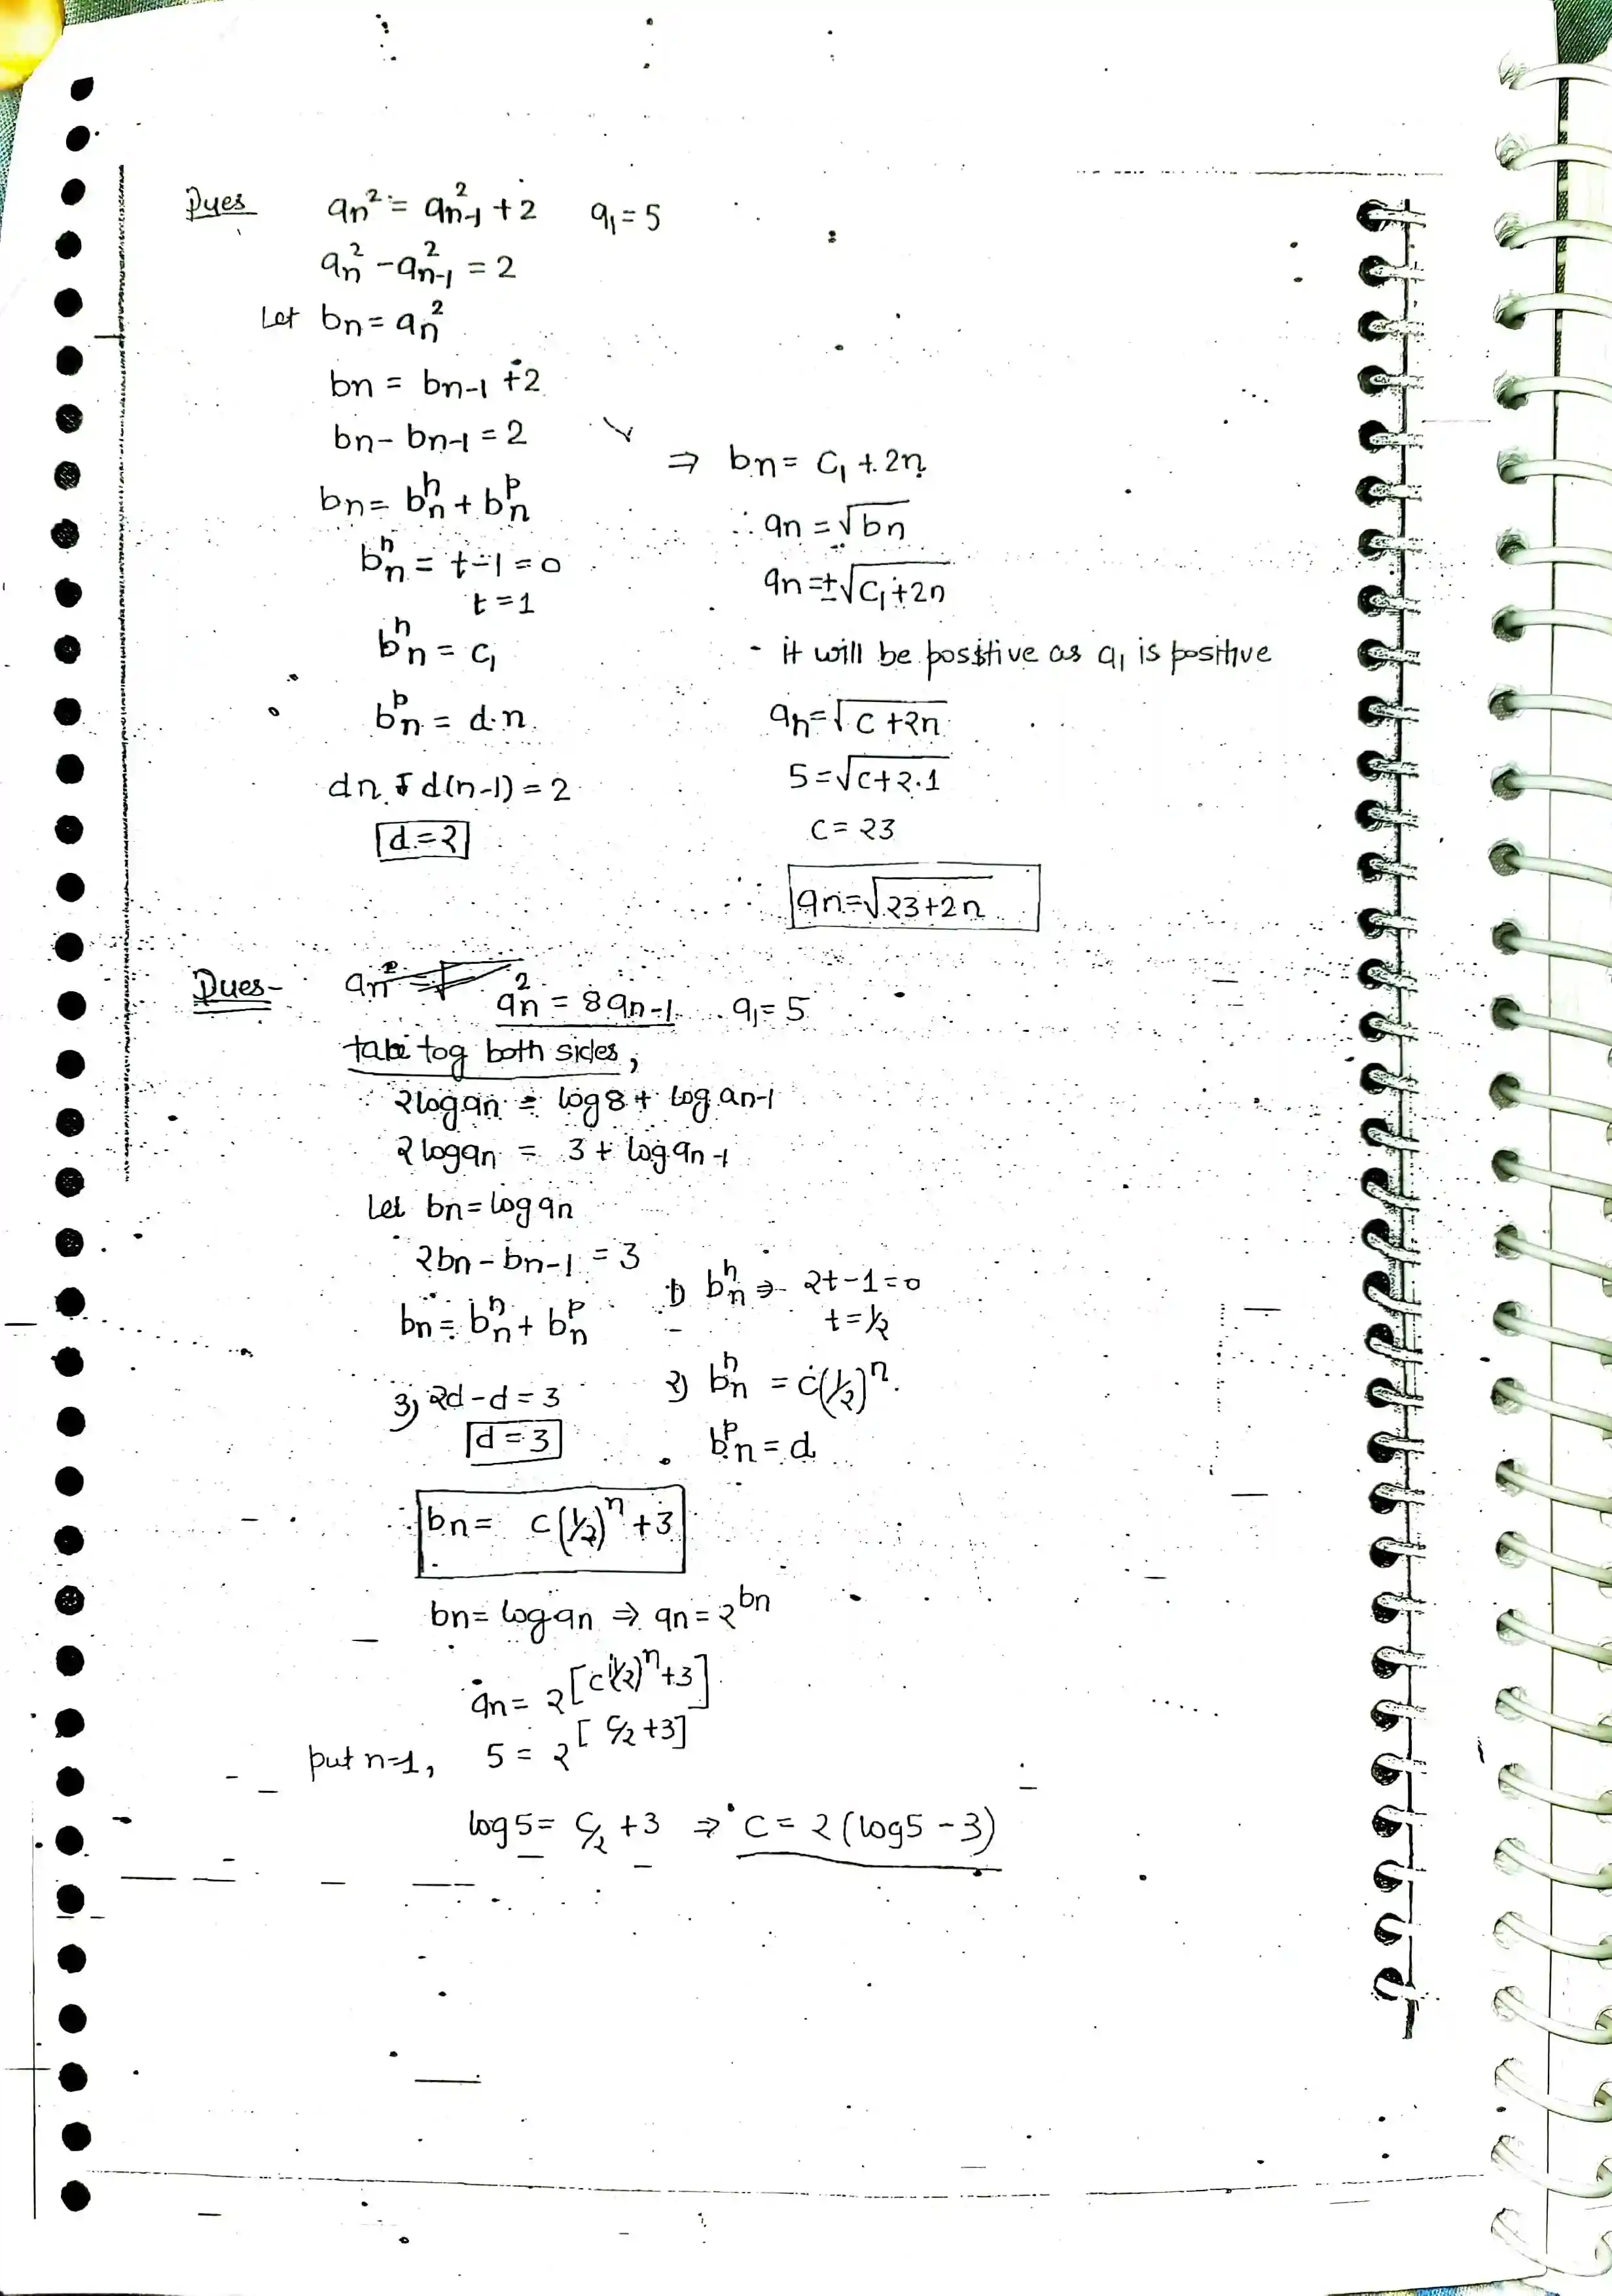 Ques aₙ² = aₙ₋₁² + 2 a₁ = 5
aₙ² - aₙ₋₁² = 2
Let bₙ = aₙ²
bₙ = bₙ₋₁ + 2
bₙ - bₙ₋₁ = 2
bₙ = bₙʰ + bₙᵖ
bₙʰ = t - 1 = 0
t = 1
bₙʰ = c₁
bₙᵖ = d·n
dn - d(n-1) = 2
d = 2
⇒ bₙ = c₁ + 2n
∴ aₙ = √bₙ
aₙ = ±√(c₁ + 2n)
- it will be positive as a₁ is positive
aₙ = √(c + 2n)
5 = √(c + 2·1)
c = 23
aₙ = √(23 + 2n)
Ques- aₙ² = 8aₙ₋₁ a₁ = 5
take log both sides,
2logaₙ = log8 + logaₙ₋₁
2logaₙ = 3 + logaₙ₋₁
Let bₙ = logaₙ
2bₙ - bₙ₋₁ = 3
bₙ = bₙʰ + bₙᵖ
1) bₙʰ ⇒ 2t - 1 = 0
t = 1/2
2) bₙʰ = c(1/2)ⁿ
bₙᵖ = d
3) 2d - d = 3
d = 3
bₙ = c(1/2)ⁿ + 3
bₙ = logaₙ ⇒ aₙ = 2^bₙ
aₙ = 2^[c(1/2)ⁿ + 3]
put n=1, 5 = 2^[c/2 + 3]
log5 = c/2 + 3 ⇒ c = 2(log5 - 3)